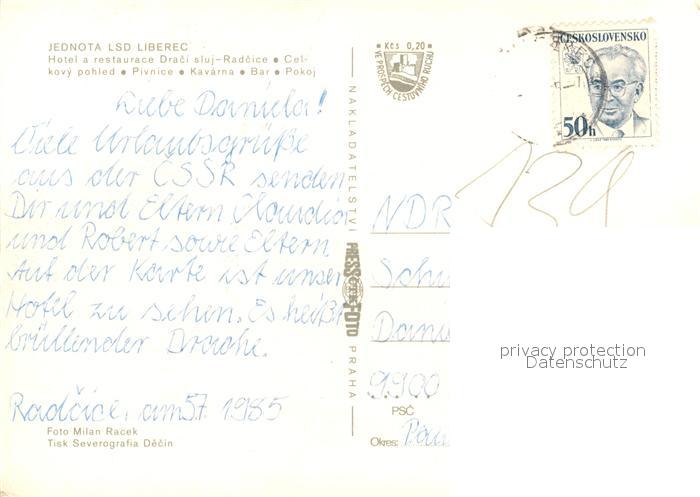 JEDNOTA LSD LIBEREC
Hotel a restaurace Dračí sluj–Radčice • Cel-
kový pohled • Pivnice • Kavárna • Bar • Pokoj
Liebe Daniela!
Viele Urlaubsgrüße
aus der ČSSR senden
Dir und Eltern Claudia
und Robert sowie Eltern
Auf der Karte ist unser
Hotel zu sehen. Es heißt
brüllender Drache.
Radčice, am 5.7. 1985
Foto Milan Racek
Tisk Severografia Děčín
NAKLADATELSTVÍ
PRESSFOTO
PRAHA
Kčs 0,20
VE PROSPĚCH CESTOVNÍHO RUCHU
ČESKOSLOVENSKO
50h
NDR
Schu
Dani
9900
PSČ
Okres: Plau
privacy protection
Datenschutz